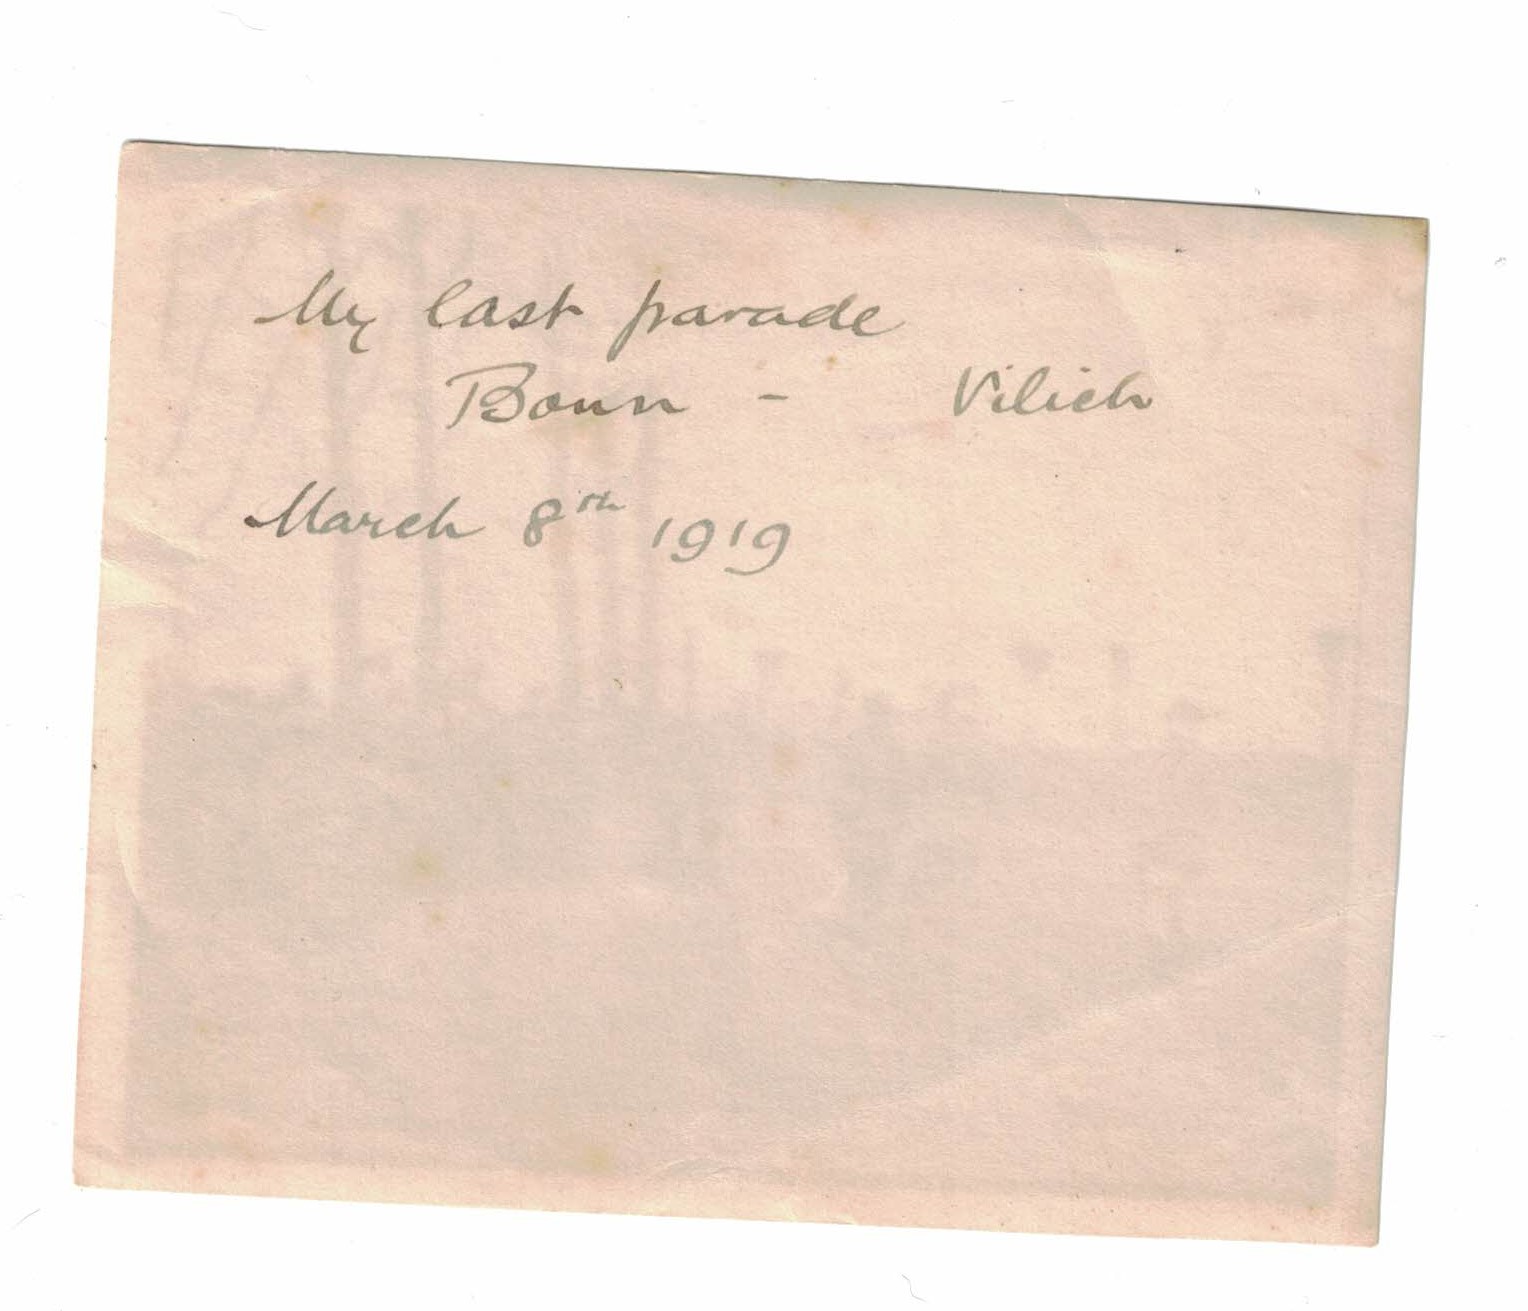 My last parade
Bonn - Vilich
March 8th 1919